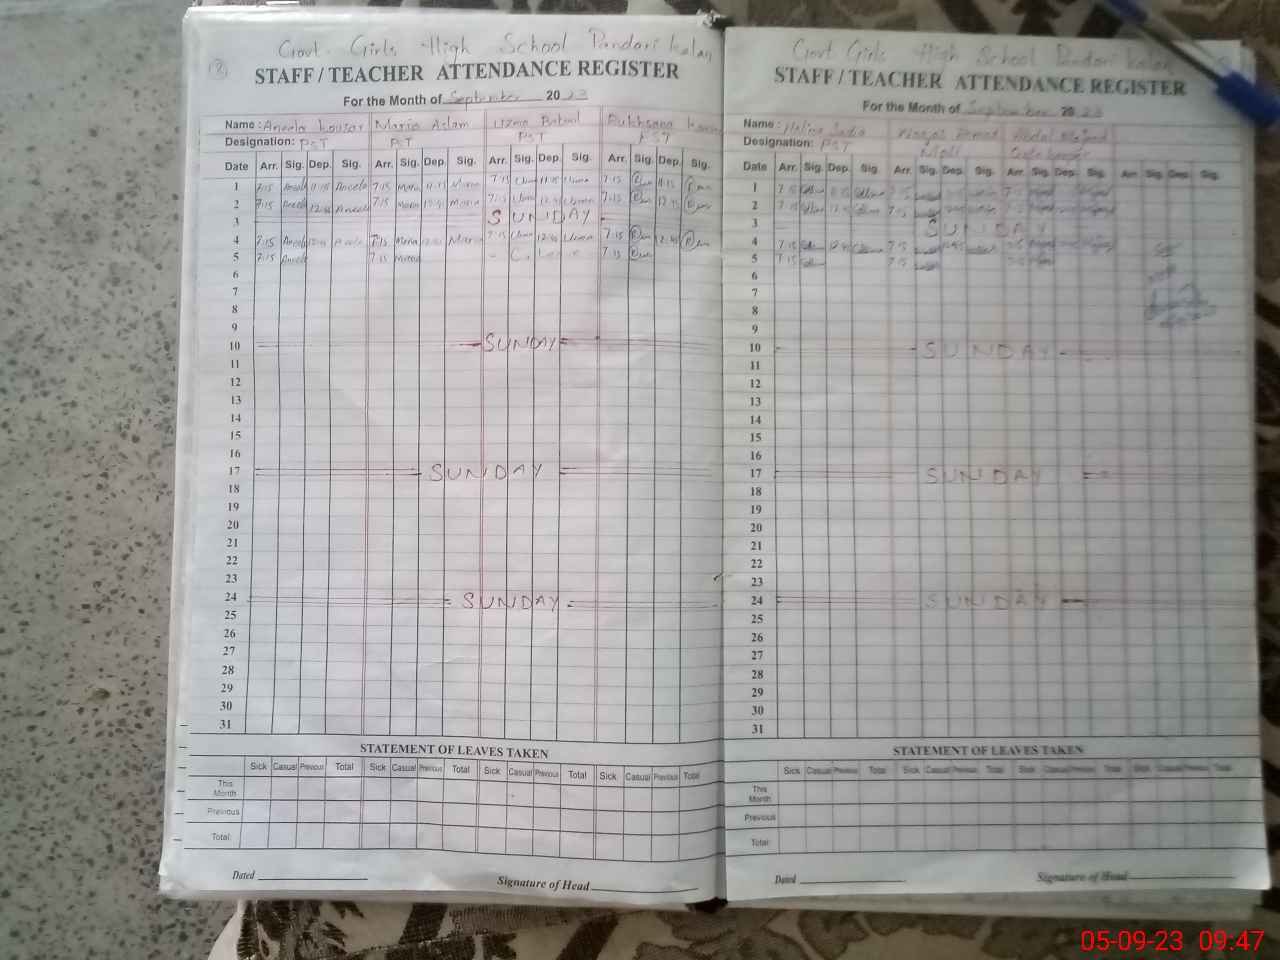 Govt. Girls High School Pandori kalan
STAFF / TEACHER ATTENDANCE REGISTER
For the Month of September 2023
Name : Aneela kousar Maria Aslam Uzma Batool Rukhsana
Designation: PST PST PST PST
Date Arr. Sig. Dep. Sig. Arr. Sig. Dep. Sig. Arr. Sig. Dep. Sig. Arr. Sig. Dep. Sig.
1 7:15 Aneela 11:15 Aneela 7:15 Maria 11:15 Maria 7:15 Uzma 11:15 Uzma 7:15 11:15
2 7:15 Aneela 12:45 Aneela 7:15 Maria 12:45 Maria 7:15 Uzma 12:45 Uzma 7:15 12:45
3 SUNDAY
4 7:15 Aneela 12:45 Aneela 7:15 Maria 12:45 Maria 7:15 Uzma 12:45 Uzma 7:15 12:45
5 7:15 Aneela 7:15 Maria - C. Leave - 7:15
6
7
8
9
10 SUNDAY
11
12
13
14
15
16
17 SUNDAY
18
19
20
21
22
23
24 SUNDAY
25
26
27
28
29
30
31
STATEMENT OF LEAVES TAKEN
Sick Casual Previous Total Sick Casual Previous Total Sick Casual Previous Total Sick Casual Previous Total
This Month
Previous
Total
Dated
Signature of Head
Govt Girls High School Pandori kalan
STAFF / TEACHER ATTENDANCE REGISTER
For the Month of September 2023
Name : Halima Sadia Abdul Majeed
Designation: PST Mali Gate keeper
Date Arr. Sig. Dep. Sig. Arr. Sig. Dep. Sig. Arr. Sig. Dep. Sig. Arr. Sig. Dep. Sig.
1 7:15 7:15 7:15
2 7:15 7:15 7:15
3 SUNDAY
4 7:15 12:45 7:15 12:45 7:15
5 7:15 7:15 7:15
6
7
8
9
10 SUNDAY
11
12
13
14
15
16
17 SUNDAY
18
19
20
21
22
23
24 SUNDAY
25
26
27
28
29
30
31
STATEMENT OF LEAVES TAKEN
Sick Casual Previous Total Sick Casual Previous Total Sick Casual Previous Total Sick Casual Previous Total
This Month
Previous
Total
Dated
Signature of Head
05-09-23 09:47